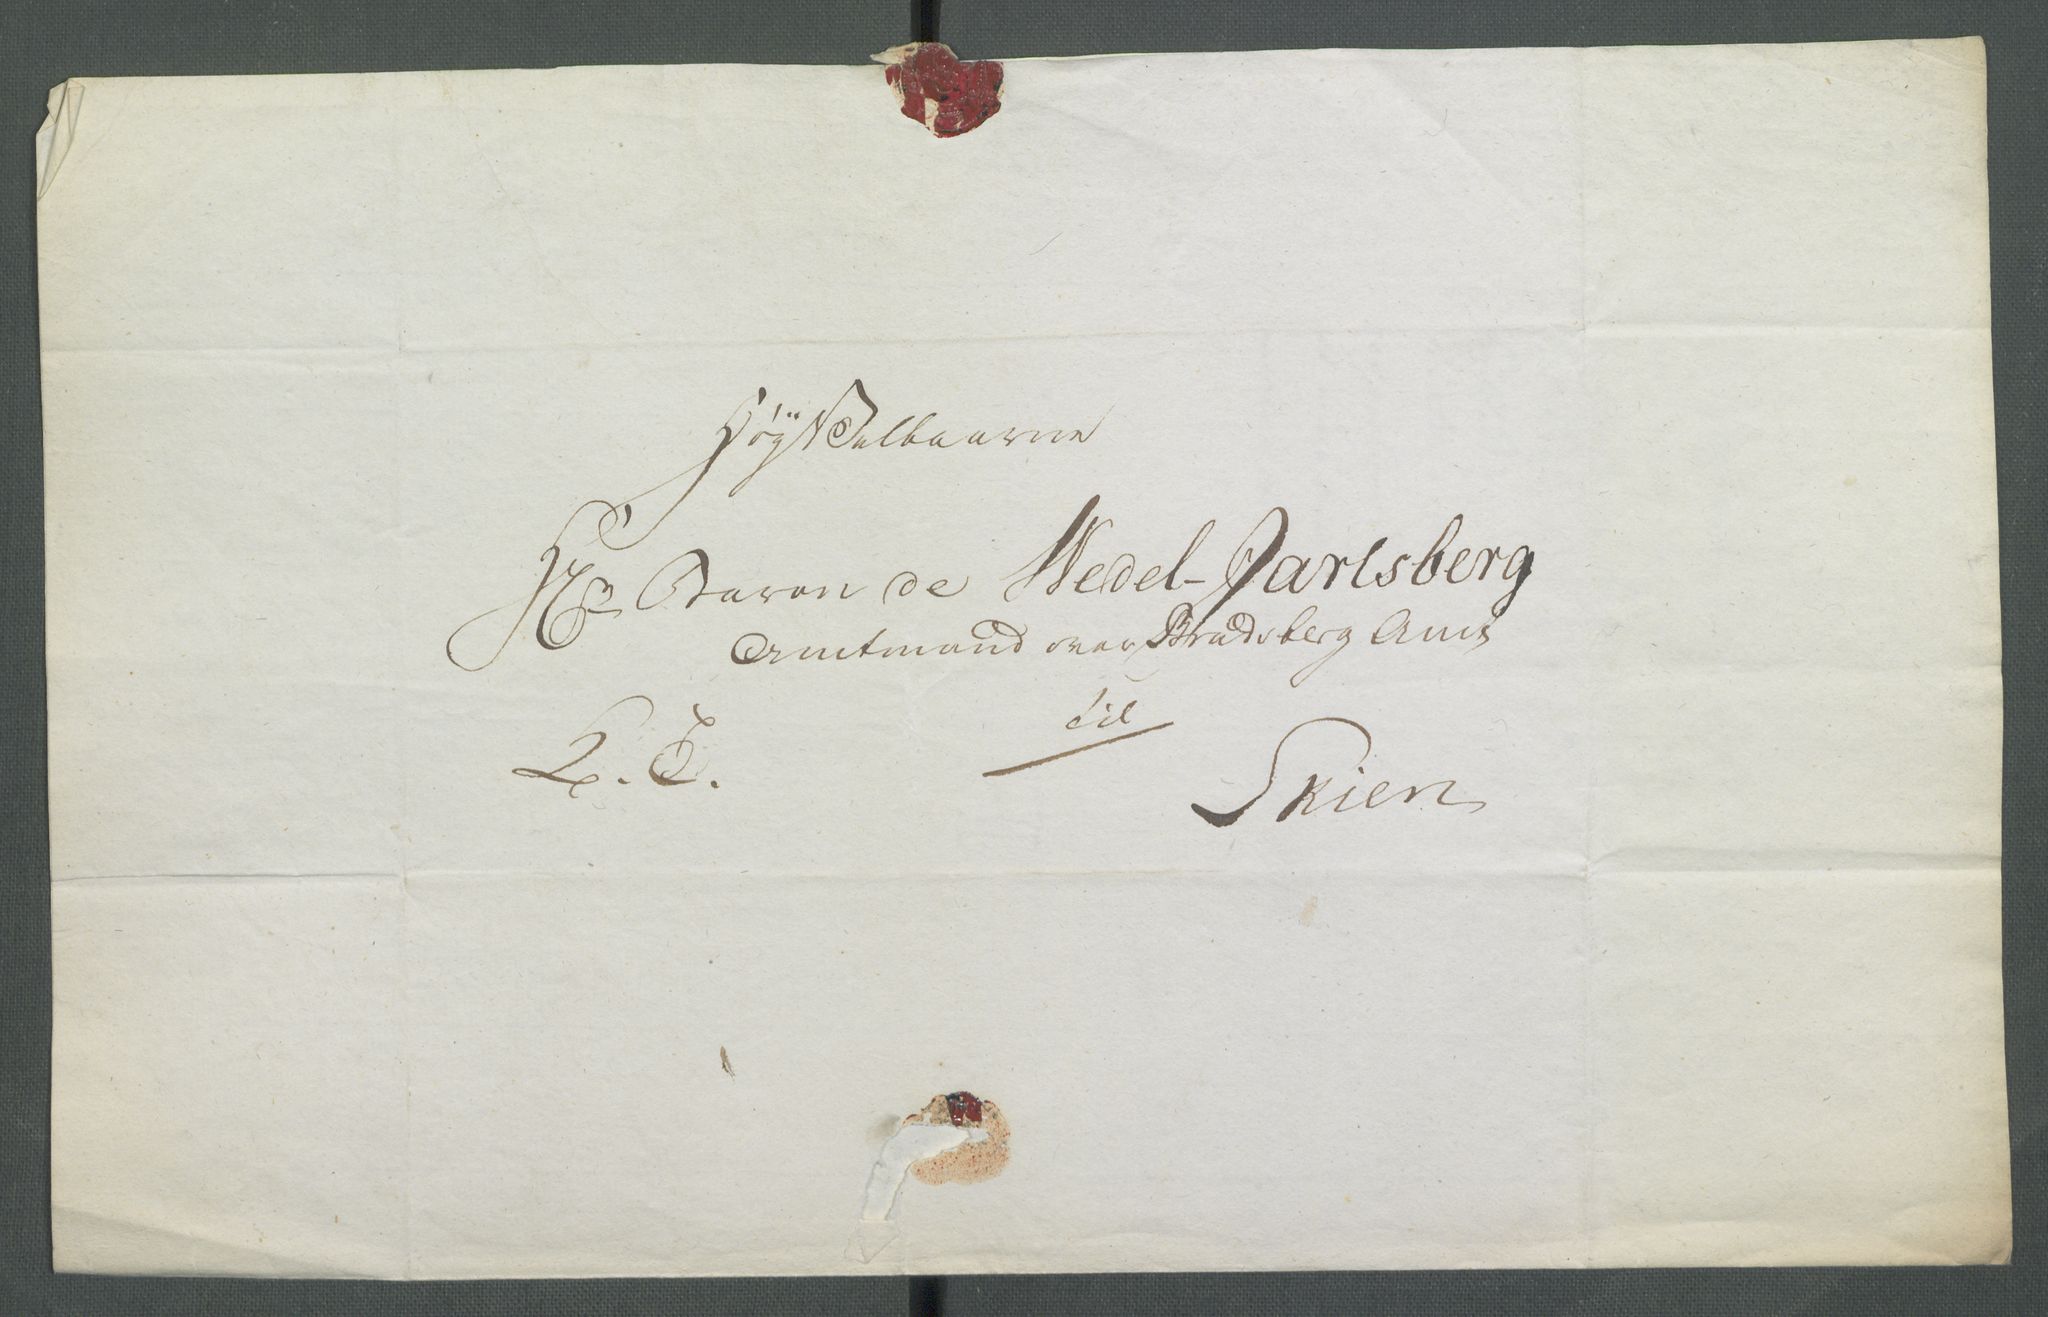 HöÿVelbaarne
Hr Baron de Wedel-Jarlsberg
Amtmand over Bradsberg Amt
til
Skien